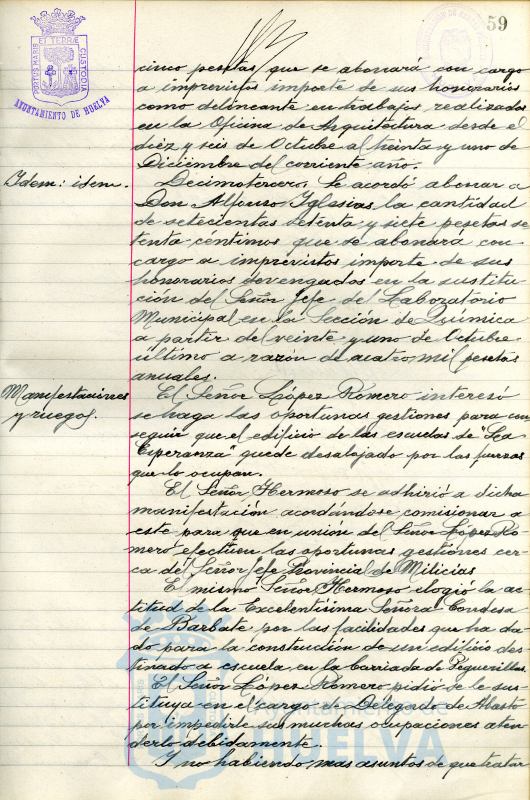 59
PORTUS MARIS ET TERRÆ CUSTODIA
AYUNTAMIENTO DE HUELVA
cinco pesetas que se abonará con cargo
a imprevistos importe de sus honorarios
como delineante en trabajos realizados
en la Oficina de Arquitectura desde el
diez y seis de Octubre al treinta y uno de
Diciembre del corriente año.
Idem: idem.
Decimotercero. Se acordó abonar a
Don Alfonso Iglesias la cantidad
de setecientas setenta y siete pesetas se
tenta céntimos que se abonará con
cargo a imprevistos importe de sus
honorarios devengados en la sustitu
ción del Señor Jefe del Laboratorio
Municipal en la Sección de Química
a partir del veinte y uno de Octubre
último a razón de cuatro mil pesetas
anuales.
Manifestaciones
y ruegos.
El Señor López Romero interesó
se haga las oportunas gestiones para con
seguir que el edificio de las escuelas de "La
Esperanza" quede desalojado por las fuerzas
que lo ocupan.
El Señor Hermoso se adhirió a dicha
manifestación acordándose comisionar a
este para que en unión del Señor López Ro
mero efectuen las oportunas gestiones cer
ca del Señor Jefe Provincial de Milicias
El mismo Señor Hermoso elogió la ac
titud de la Excelentísima Señora Condesa
de Barbate por las facilidades que ha da
do para la construcción de un edificio des
tinado a escuela en la barriada de Peguerillas.
El Señor López Romero pidió se le sus
tituya en el cargo de Delegado de Abasto
por impedirle sus muchas ocupaciones aten
derlo debidamente.
Y no habiendo mas asuntos de que tratar
Ayuntamiento de
HUELVA